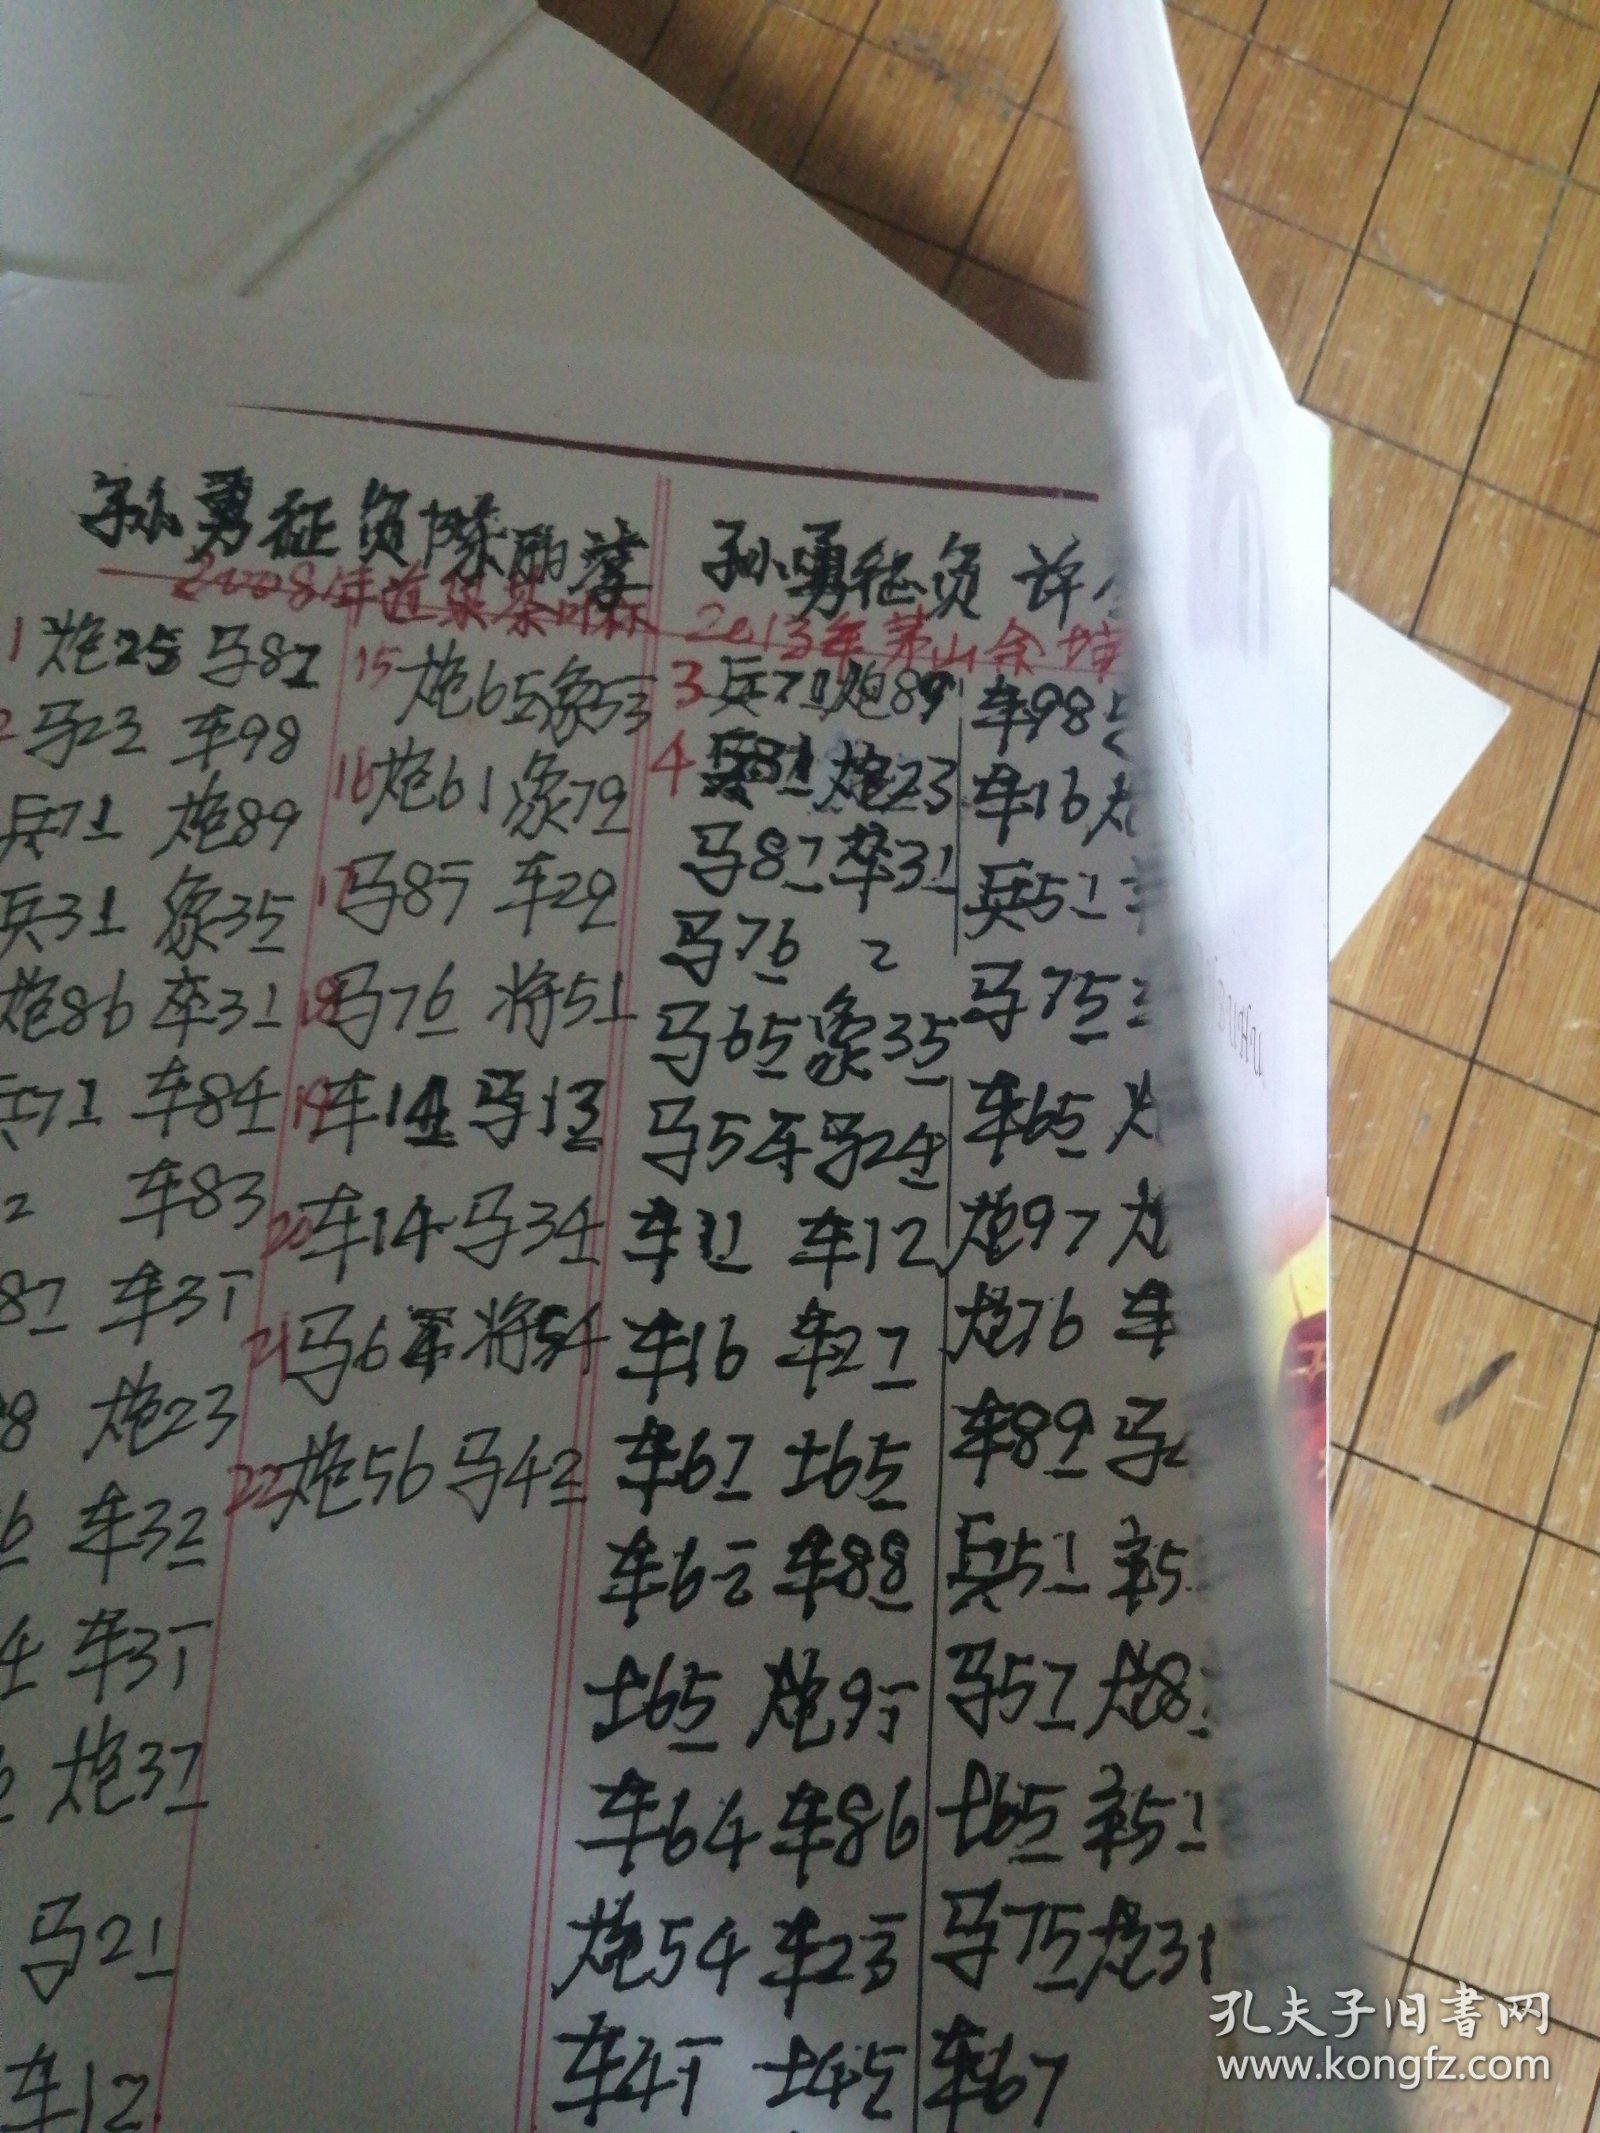 孙勇征负陈丽淳
2008年道泉茶叶杯
1 炮25 马87
2 马23 车98
兵71 炮89
兵31 象35
炮86 卒31
兵71 车84
2 车83
87 车31
8 炮23
6 车32
4 车31
炮37
马21
车12
15 炮65 象53
16 炮61 象79
17 马87 车29
18 马76 将51
19 车14 马13
20 车14 马34
21 马64 将54
22 炮56 马42
孙勇征负 许
2013年茅山
3 兵71 炮89
4 兵81 炮23
马87 卒31
马76 2
马65 象35
马54 马24
车11 车12
车16 车27
车67 士65
车62 车88
士65 炮91
车64 车86
炮54 车23
车41 士45
车98
车16
兵51
马75
车65
炮97
炮76 车
车89 马
兵51 卒5
马57 炮8
士65 卒51
马75 炮31
车67
孔夫子旧书网
www.kongfz.com